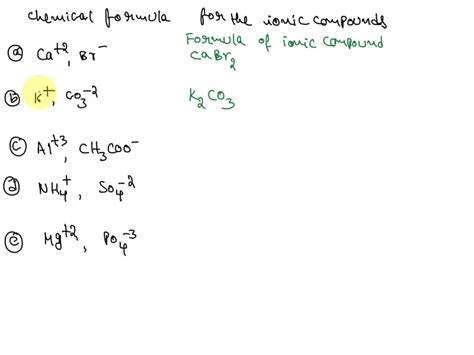 chemical formula for the ionic compounds
Formula of ionic compound
ⓐ Ca⁺², Br⁻ CaBr₂
ⓑ K⁺, CO₃⁻² K₂CO₃
ⓒ Al⁺³, CH₃COO⁻
ⓓ NH₄⁺, SO₄⁻²
ⓔ Mg⁺², PO₄⁻³